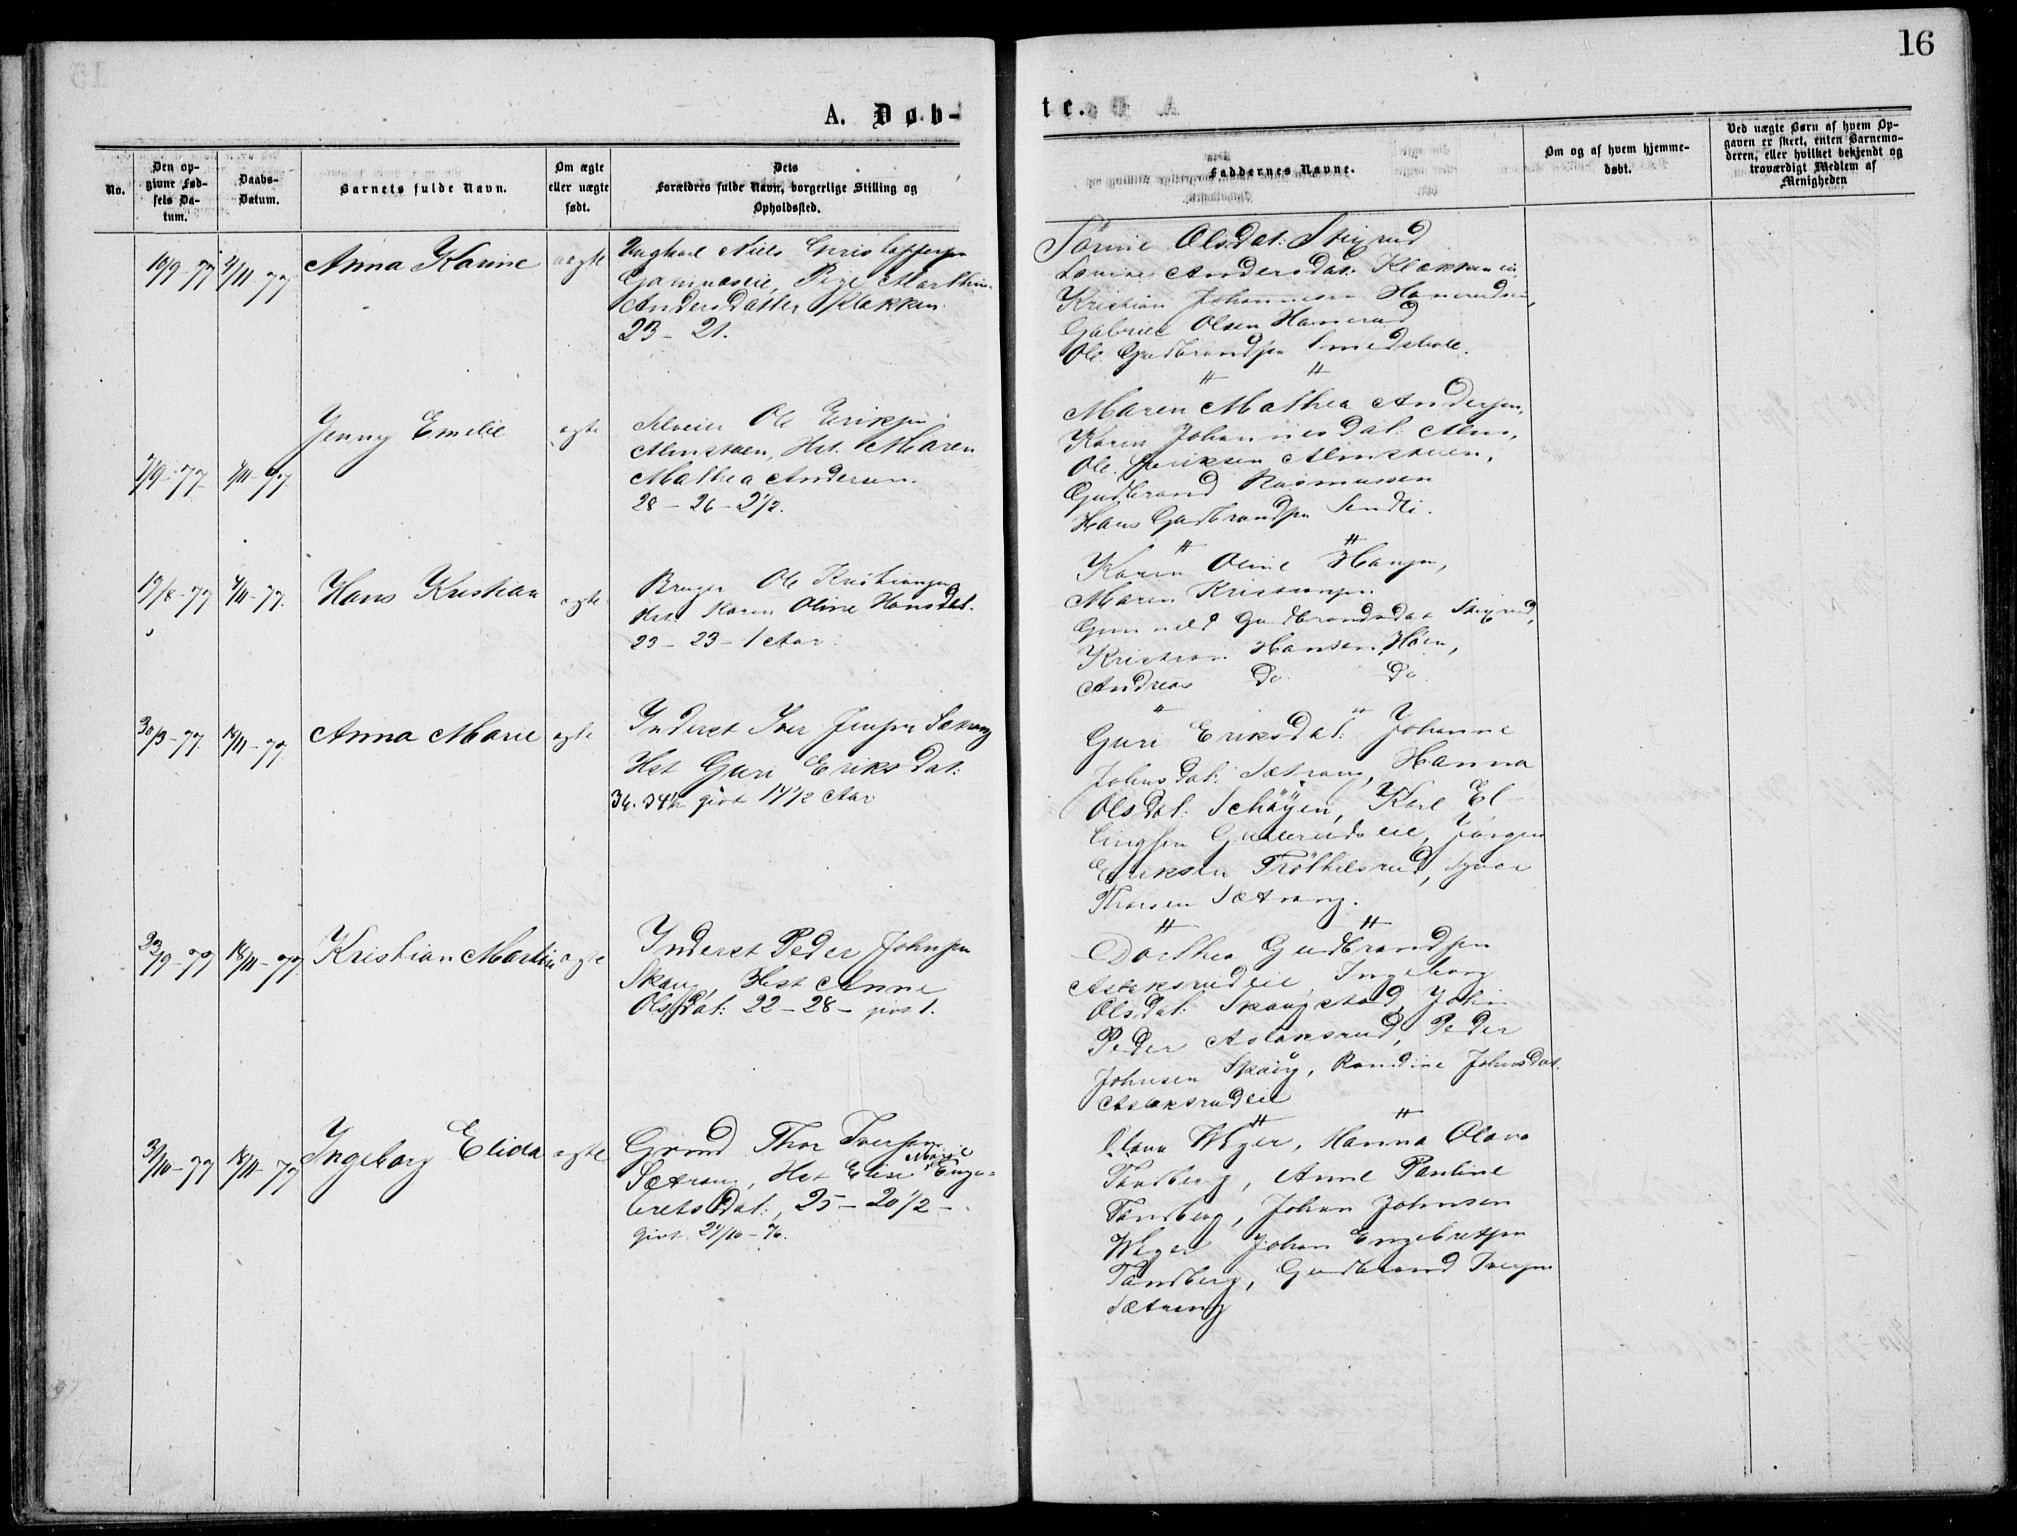 16
A. Døb-
te.
No.
Den op-
givne Fød-
sels Da-
tum.
Daabs-
Datum.
Barnets fulde Navn.
Om ægte
eller uægte
født.
Dets
Forældres fulde Navn, borgerlige Stilling og
Opholdssted.
Faddernes Navne.
Om og af hvem hjemme-
døbt.
Ved uægte Børn af hvem Op-
gaven er skeet, enten Barnemo-
deren, eller hvilket bekjendt og
troværdigt Medlem af
Menigheden
10/9-77
4/11-77
Anna Karine
uægte
Ungkarl Niels Christoffersen
Pige Marthin
Andersdatter Klækken
23 - 21.
Olsdat: Stigrud
Andersdat: Klækken
Kristian Johannesen
Gabriel Olsen Hamerud
Ole Gudbrandsen
7/9-77
4/11-77
Jenny Emilie
ægte
Ole Eriksen
Almstaen, Hst. Maren
Mathea Andersen.
28 - 26 - 2 1/2.
" "
Maren Mathea Andersen,
Karen Johannesdat: Alm,
Ole Eriksen Almstaen,
Gudbrand Rasmussen
Hans Gudbrandsen
19/8-77
4/11-77
Hans Kristian
ægte
Bruger Ole Kristiansen
Hst. Karen Oline Hansdat.
23 - 23 - 1 Aar
" "
Karen Oline Hansen,
Maren Kristiansen
Gunnild Gudbrandsdat Stigrud,
Kristian Hansen Høen,
Andreas do do
30/9-77
18/11-77
Anna Marie
ægte
Inderst Iver Jensen Sætrang
Hst Guri Eriksdat:
36. 34 1/2 givt 14 1/2 Aar
" "
Guri Eriksdat: Johanne
Johnsdat: Sætrang, Hanna
Olsdat: Schøyen, Karl El-
lingsen Jørgen
Eriksen
Thorsen Sætrang.
22/9-77
18/11-77
Kristian Martin
ægte
Inderst Peder Johnsen
Skaug, Hst Anne
Olsdat: 22 - 28 - givt 1.
" "
Dorthea Gudbrandsen
Aslaksrudeie, Ingeborg
Olsdat: Skaugstad, John
Peder Aslaksrud, Peder
Johnsen Skaug, Randine Johnsdat.
Aslaksrudeie
31/10-77
18/11-77
Ingeborg Elida
ægte
Grmd Thor Iversen
Sætrang, Hst Elise Marie Enge-
bretsdat:, 25 - 20 1/2 -
givt 27/10-76.
" "
Olava Weger, Hanna Olava
Tandberg, Anne Pauline
Tandberg, Johan Johnsen
Weger Johan Engebretsen
Tandberg, Gudbrand Iversen
Sætrang